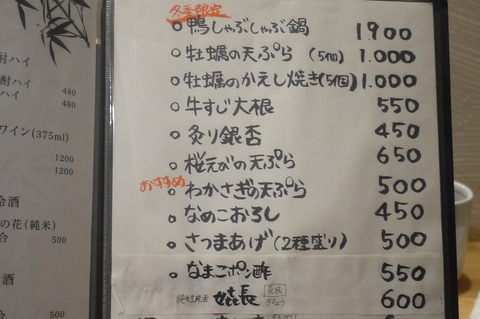 冬季限定
鴨しゃぶしゃぶ鍋 1900
牡蠣の天ぷら (5個) 1.000
牡蠣のかえし焼き(5個) 1.000
牛すじ大根 550
炙り銀杏 450
桜えびの天ぷら 650
おすすめ
わかさぎの天ぷら 500
なめこおろし 450
さつまあげ(2種盛り) 500
なまこポン酢 550
長 600
酎ハイ
酎ハイ
ハイ 480
480
ワイン(375ml)
1200
1200
冷酒
の花(純米)
合 500
酒
合 500